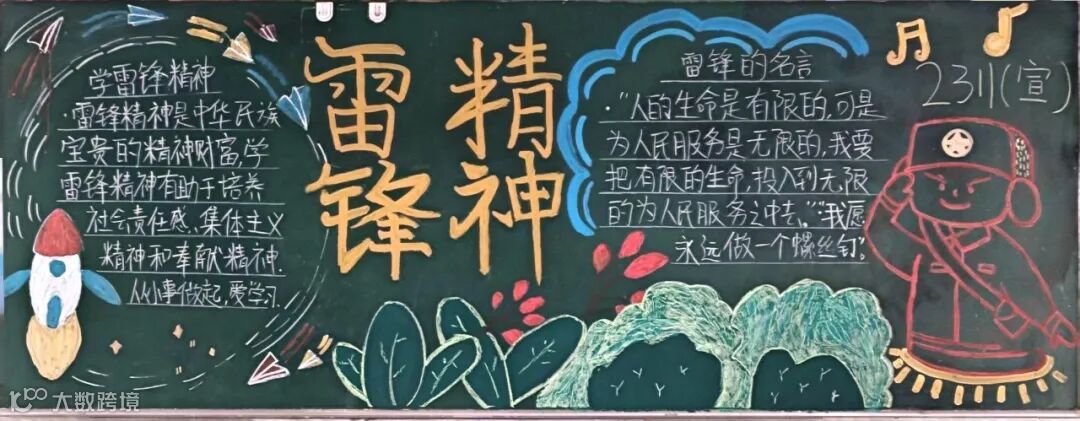 学雷锋精神
·雷锋精神是中华民族
宝贵的精神财富,学
雷锋精神有助于培养
社会责任感、集体主义
精神和奉献精神.
从小事做起,爱学习.
雷锋
精神
雷锋的名言
·"人的生命是有限的,可是
为人民服务是无限的,我要
把有限的生命,投入到无限
的为人民服务之中去。""我愿
永远做一个螺丝钉"。
2311(宣)
大数跨境